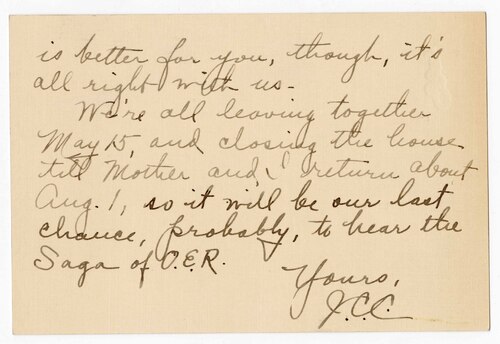 is better for you, though, it's
all right with us.
We're all leaving together
May 15, and closing the house
till Mother and I return about
Aug. 1, so it will be our last
chance, probably, to hear the
Saga of O.E.R.
Yours,
J.C.C.